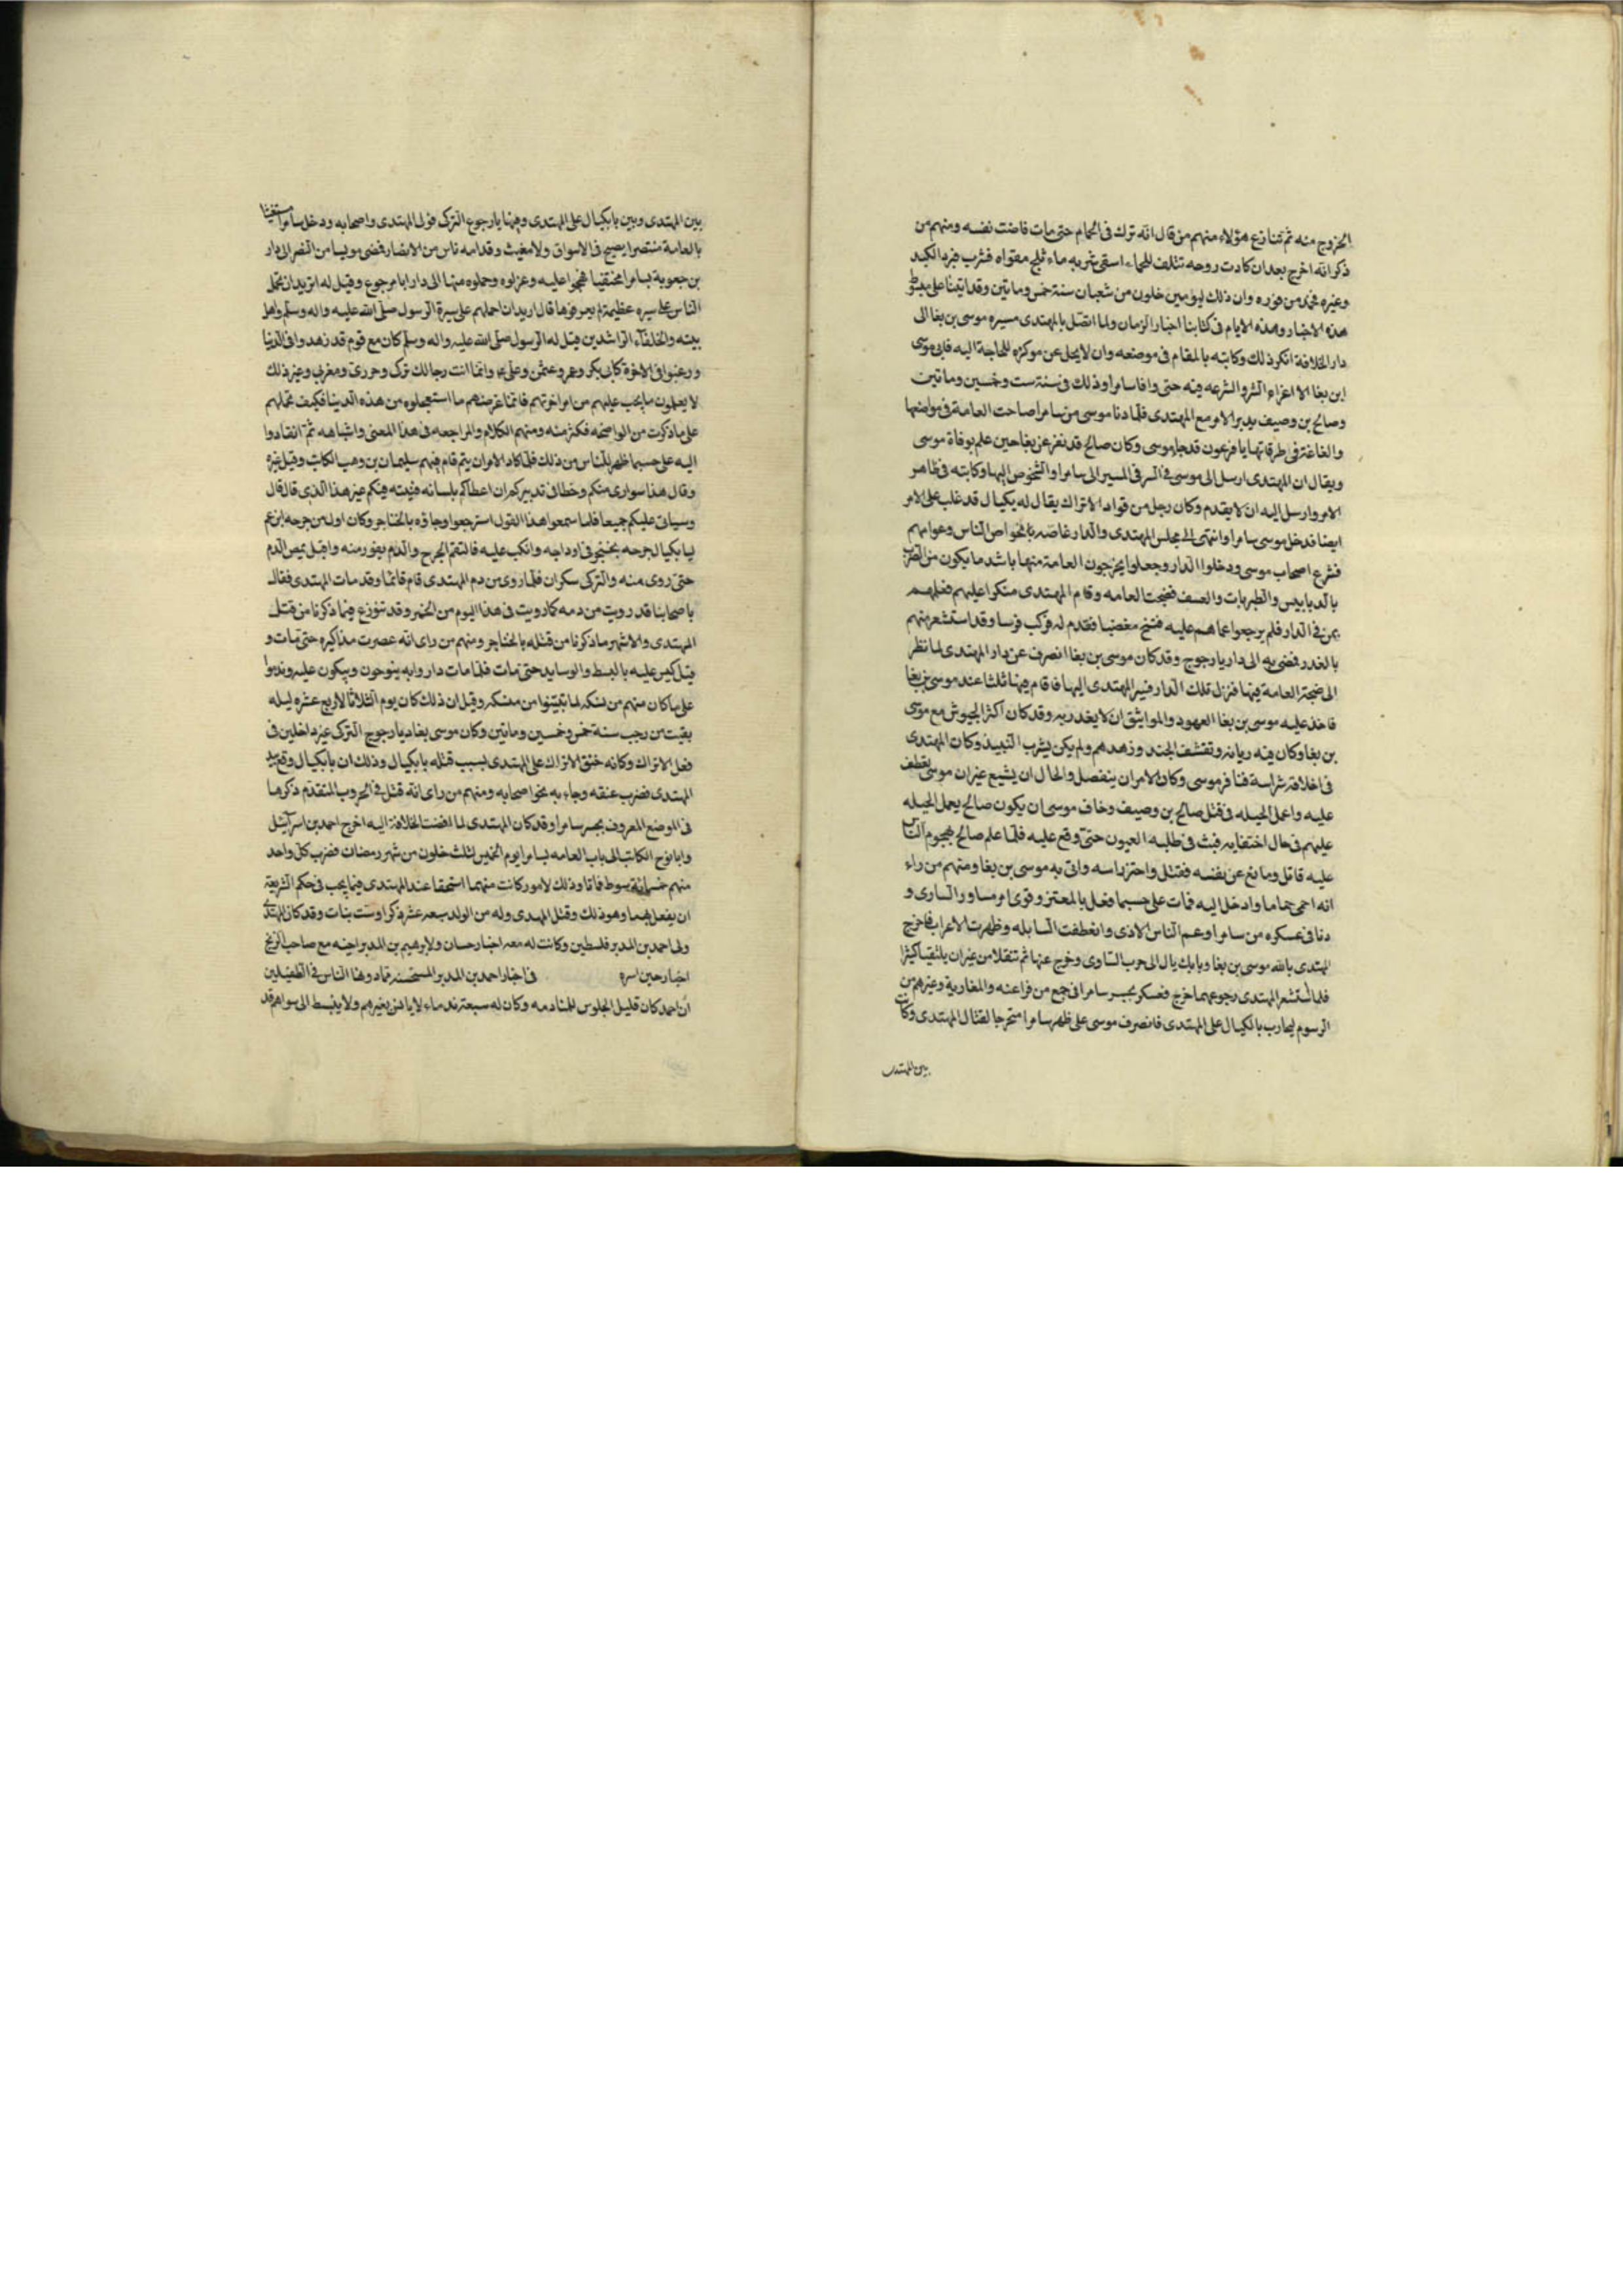 الخروج منه ثم تنازع هؤلاء منهم من قال انه ترك فى الحمام حتى مات فاضت نفسه ومنهم من
ذكر انه اخرج بعد ان كادت روحه تتلف للحماء اسقى شربه ماء ثلج مقراه فشرب فبرد الكبد
وغيره فخمد من فوره وان ذلك ليومين خلون من شعبان سنة خمس وماتين وقد اتينا على مبسوط
هذه الاخبار وهذه الايام فى كتابنا اخبار الزمان ولما اتصل بالمهتدى مسيره موسى بن بغا الى
دار الخلافة انكر ذلك وكاتبه بالمقام فى موضعه وان لا يحل عن مركزه للحاجة اليه فابى موسى
ابن بغا الا اعزاء السر والشرعه فيه حتى وافا سامرا وذلك فى سنة ست وخمسين وماتين
وصالح بن وصيف يدبر الامر مع المهتدى فلما دنا موسى من سامرا صاحت العامة فى مواضعها
والغاغة فى طرقاتها يا فرعون قد جا موسى وكان صالح قد نفر عن بغا حين علم بوفاة موسى
ويقال ان المهتدى ارسل الى موسى فى السر فى المسير الى سامرا والشخوص اليها وكاتبه فى ظاهر
الامر وارسل اليه ان لا يقدم وكان رجل من قواد الاتراك يقال له يكيال قد غلب على الامر
ايضا فدخل موسى سامرا وانتهى الى مجلس المهتدى والدار غاصه بالخواص الناس وعوامهم
فشرع اصحاب موسى ودخلوا الدار وجعلوا يخرجون العامة منها باشد ما يكون من الضرب
بالدبابيس والطبريات والعسف فضجت العامه وقام المهتدى منكرا عليهم فعلهم
بمن فى الدار فلم يرجعوا عما هم عليه فتنحى مغضبا فقدم له فركب فرسا وقد استشعر منهم
بالغدر فمضى به الى دار يارجوج وقد كان موسى بن بغا انصرف عن دار المهتدى لما نظر
الى ضجة العامة فيها فنزل تلك الدار فسير المهتدى اليها فاقام فيها ثلثا عند موسى بن بغا
فاخذ عليه موسى بن بغا العهود والمواثيق ان لا يغدر به وقد كان اكثر الجيوش مع موسى
بن بغا وكان فيه ديانة وتقشف الجند وزهدهم ولم يكن يشرب النبيذ وكان المهتدى
فى اخلاقه شراسة فنافر موسى وكان الامران ينفصل والحال ان يشيع غير ان موسى تعطف
عليه واعمل الحيله فى قتل صالح بن وصيف وخاف موسى ان يكون صالح يعمل الحيله
عليهم فى حال اختفايه فبث فى طلبه العيون حتى وقع عليه فلما علم صالح بهجوم الناس
عليه قاتل ومانع عن نفسه فقتل واحتز راسه واتى به موسى بن بغا ومنهم من راء
انه احمى حماما وادخل اليه فمات على حسبما فعل بالمعتز وقوى امر مساور السارى و
دنا فى عسكره من سامرا وعم الناس الاذى وانعطفت السابله وظهرت الاعراب فاخرج
المهتدى بالله موسى بن بغا وبابك يال الى حرب الشاوى وخرج عنها ثم تنقلا من غير ان يلتقيا كثيرا
فلما استشعر المهتدى رجوعهما خرج فعسكر بجسر سامرا فى جمع من فراعنه والمغاربة وغيرهم من
الرسوم ليحارب بالكيال على المهتدى فانصرف موسى على ظهر سامرا متحرجا لقتال المهتدى وكانت
بين المهتدى
بين المهتدى وبين بابكيال على المهتدى وفيها يارجوع التركى فولى المهتدى واصحابه ودخل سامرا مستغيثا
بالعامة منتصرا يصيح فى الاسواق ولا مغيث وقدامه ناس من الانصار فمضى مويسا من النصر الى دار
بن جعوية بسامرا مختفيا فهجموا عليه وعزلوه وحملوه منها الى دار ايا مرجوع وقيل له اتريد ان تحمل
الناس على سيره عظيمة لم يعرفوها قال اريد ان احملهم على سيرة الرسول صلى الله عليه واله وسلم واهل
بيته والخلفآء الراشدين فقيل له الرسول صلى الله عليه واله وسلم كان مع قوم قد زهدوا فى الدنيا
ورغبوا فى الاخرة كابى بكر وعمر وعثمن وعلى وانما انت رجالك تركى وحررى ومغربى وغير ذلك
لا يعلمون ما يجب عليهم من امر اخرتهم فانما غرضهم ما استعجلوه من هذه الدنيا فكيف تحملهم
على ما ذكرت من الواضحه فكثر منه ومنهم الكلام والمراجعه فى هذا المعنى واشباهه ثم انقادوا
اليه على حسبما ظهر للناس من ذلك فلما كاد الامر ان يتم قام فيهم سليمان بن وهب الكاتب وقيل غيره
وقال هذا سوارى منكم وخطا فى تدبيركم ان اعطاكم بلسانه فنيته فيكم غير هذا الذى قال قال
وسياتى عليكم جميعا فلما سمعوا هذا القول استرجعوا وجاؤه بالخناجر وكان اول من جرحه ابن عم
لبابكيال جرحه بخنجر فى اوداجه وانكب عليه فالتقم الجرح والدم يفور منه واقبل يمص الدم
حتى روى منه والتركى سكران فلما روى من دم المهتدى قام قائما وقد مات المهتدى فقال
يا صحابنا قد رويت من دمه كما رويت فى هذا اليوم من الخمر وقد تنوزع فيما ذكرنا من قتل
المهتدى والاشهر ما ذكرنا من قتله بالخناجر ومنهم من راى انه عصرت مذاكيره حتى مات و
قيل كبس عليه بالبسط والوسايد حتى مات فلما مات دار وا به ينوحون ويبكون عليه وندموا
على ما كان منهم من لما تبينوا من منسكه وقيل ان ذلك كان يوم الثلاثا لاربع عشره ليله
بقيت من رجب سنة خمس وخمسين وماتين وكان موسى بغا ديارجوج التركى غير داخلين فى
فعل الاتراك وكانه حنق الاتراك على المهتدى بسبب قتله بابكيال وذلك ان بابكيال وقع بيد
المهتدى فضرب عنقه وجاء به نحو اصحابه ومنهم من راى انه قتل فى الحروب المتقدم ذكرها
فى الموضع المعروف بجسر سامرا وقد كان المهتدى لما افضت الخلافة اليه اخرج احمد بن اسرآئيل
وابا نوح الكاتب الى باب العامه بسامرا يوم الخميس لثلث خلون من شهر رمضان فضرب كل واحد
منهم خمسمائة سوط فماتا وذلك لامور كانت منهما استحقا عند المهتدى فيما يجب فى حكم الشريعة
ان يفعل بهما وهو ذلك وقتل المهدى وله من الولد سبعة عشر ذكرا وست بنات وقد كان المهتدى
ولى احمد بن المدبر فلسطين وكانت له معه اخبار حسان ولابرهيم بن المدبر اخيه مع صاحب الزنج
اخبار حين اسره فى اخبار احمد بن المدبر المستحسنه مما دوها الناس فى الطفيلين
ان احمد كان قليل الجلوس للمنادمه وكان له سبعة ندماء لا يانس بغيرهم ولا ينبسط الى سواهم قد